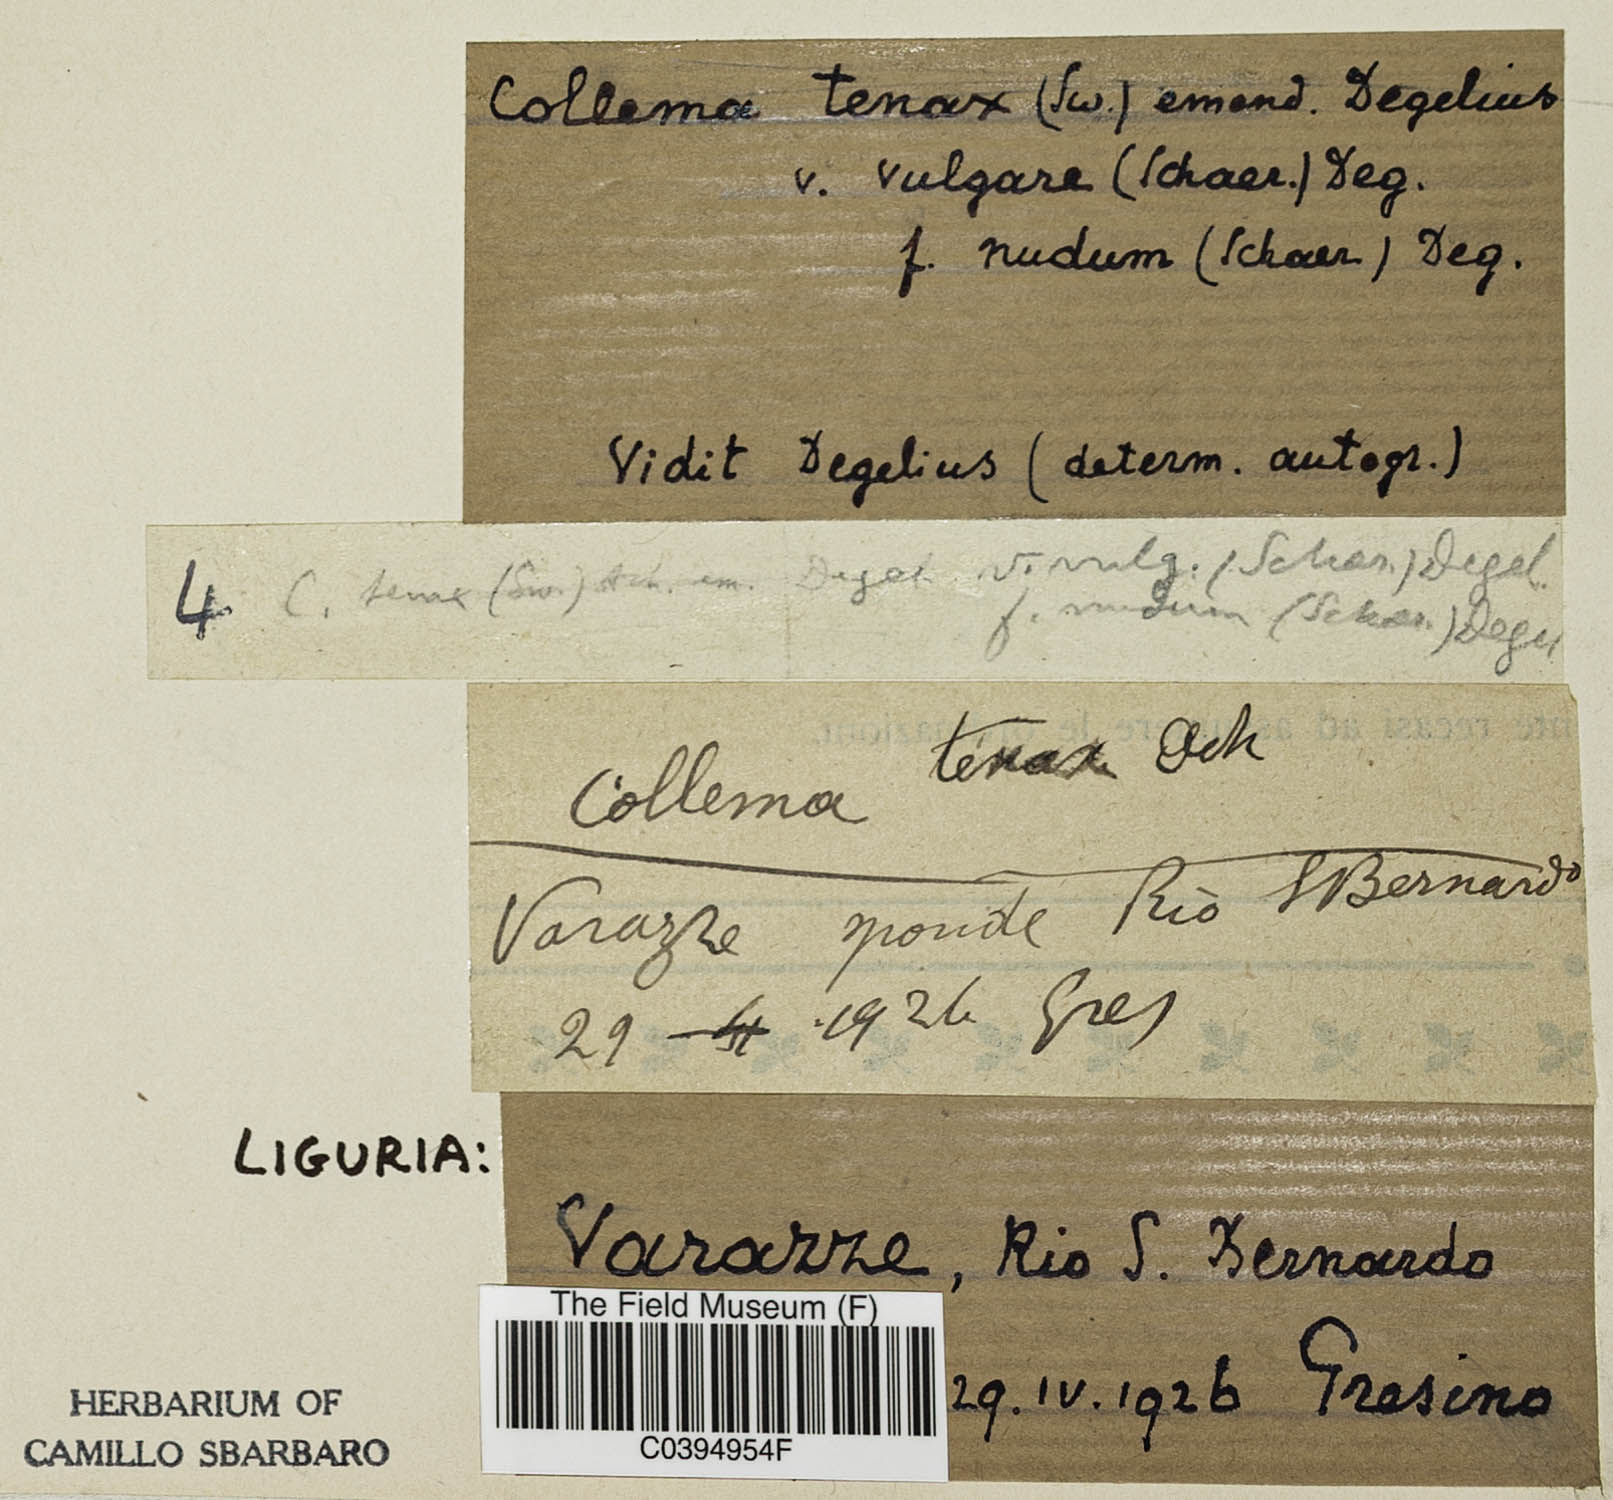 Collema tenax (Sw.) emend. Degelius
v. vulgare (Schaer.) Deg.
f. nudum (Schaer.) Deg.
Vidit Degelius (determ. autogr.)
4 C. tenax (Sw.) Ach. em. Degel. v. vulg. (Schaer.) Degel.
f. nudum (Schaer.) Degel
Collema tenax Ach
Varazze sponde Rio S Bernardo
29 - 4 . 1926 Gres
LIGURIA:
Varazze, Rio S. Bernardo
29. IV. 1926 Gresino
The Field Museum (F)
C0394954F
HERBARIUM OF
CAMILLO SBARBARO